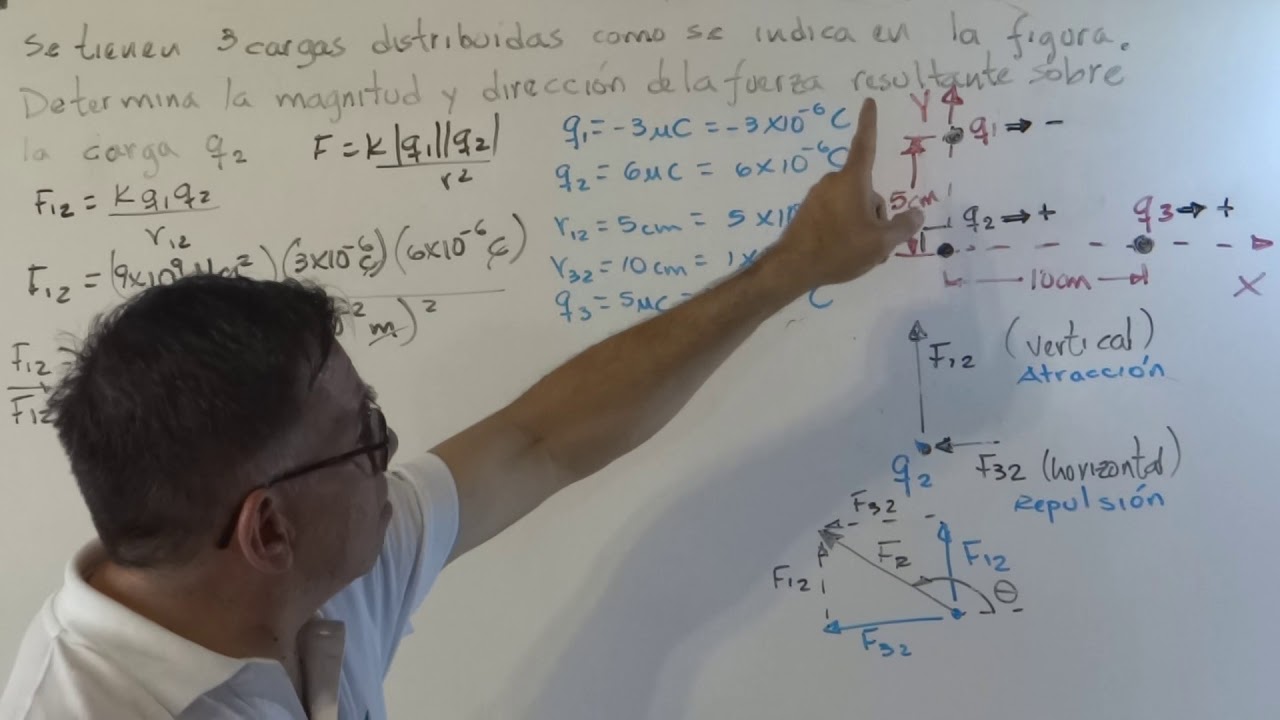 Se tienen 3 cargas distribuidas como se indica en la figura.
Determina la magnitud y dirección de la fuerza resultante sobre
la carga q2
F = K |q1||q2|
r²
F12 = K q1 q2
r12
F12 = (9x10⁹ (3x10⁻⁶ C)(6x10⁻⁶ C)
⁻² m)²
F12
F12
q1 = -3 μC = -3x10⁻⁶ C
q2 = 6 μC = 6x10⁻⁶ C
r12 = 5 cm = 5x10
r32 = 10 cm = 1x
q3 = 5 μC = C
Y
q1 → -
5cm
q2 → +
q3 → +
10cm
X
F12 (vertical)
Atracción
q2
F32 (horizontal)
Repulsión
F32
F12
F2
F12
θ
F32